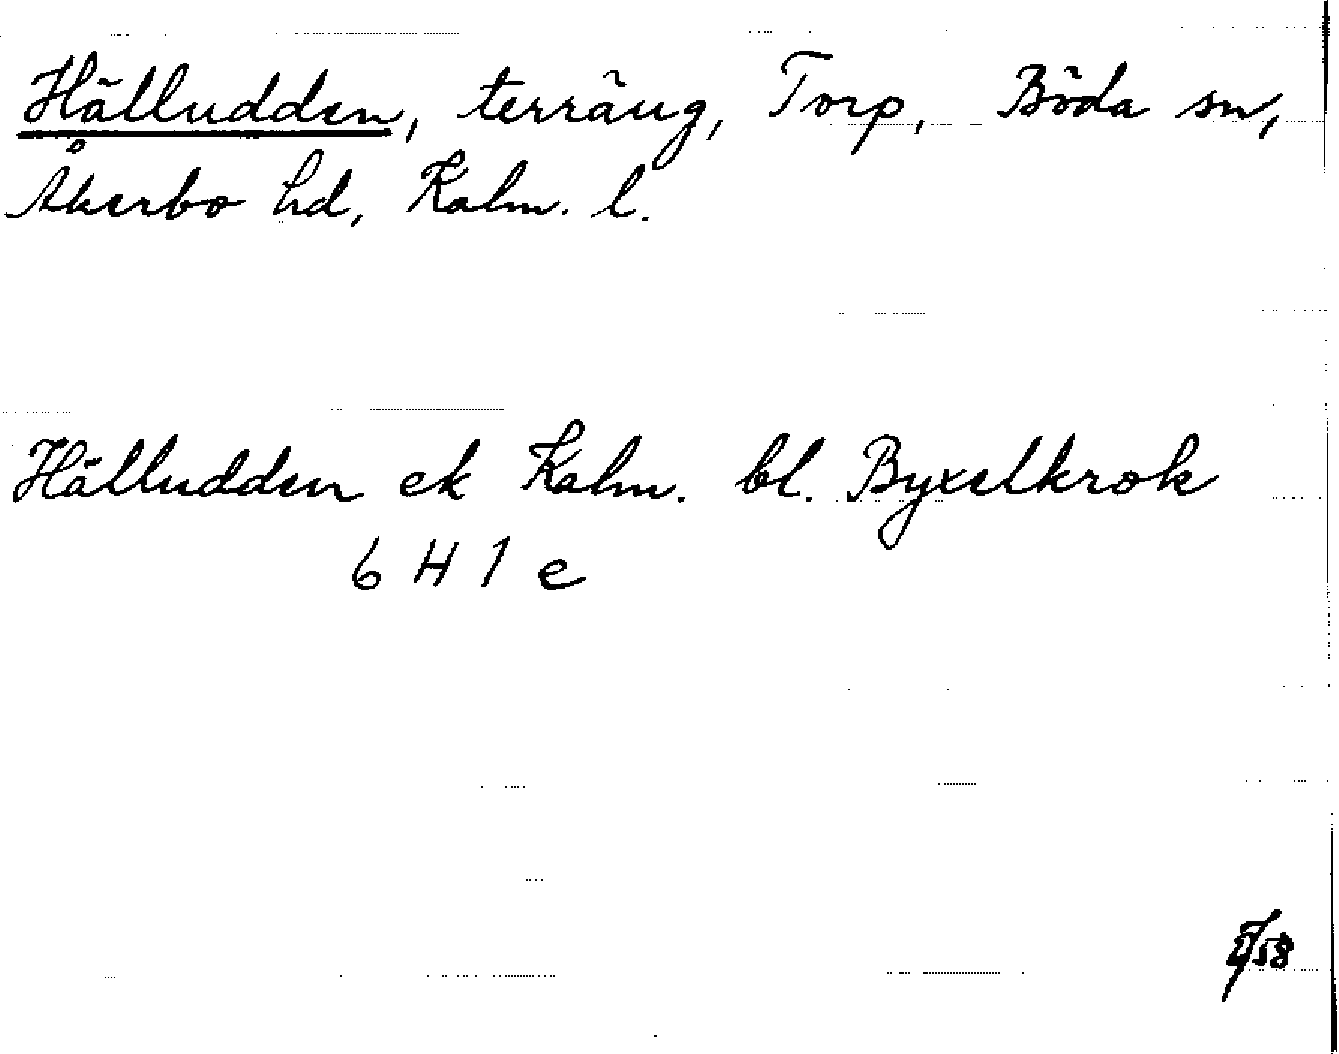 Hälludden, terräng, Torp, Böda sn,
Åkerbo hd, Kalm. l.
Hälludden ek Kalm. bl. Byxelkrok
6 H 1 e